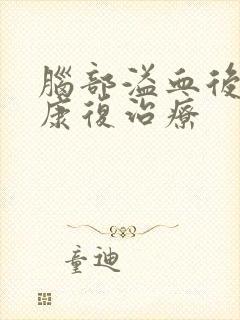 腦部溢血後
康復治療
童迪